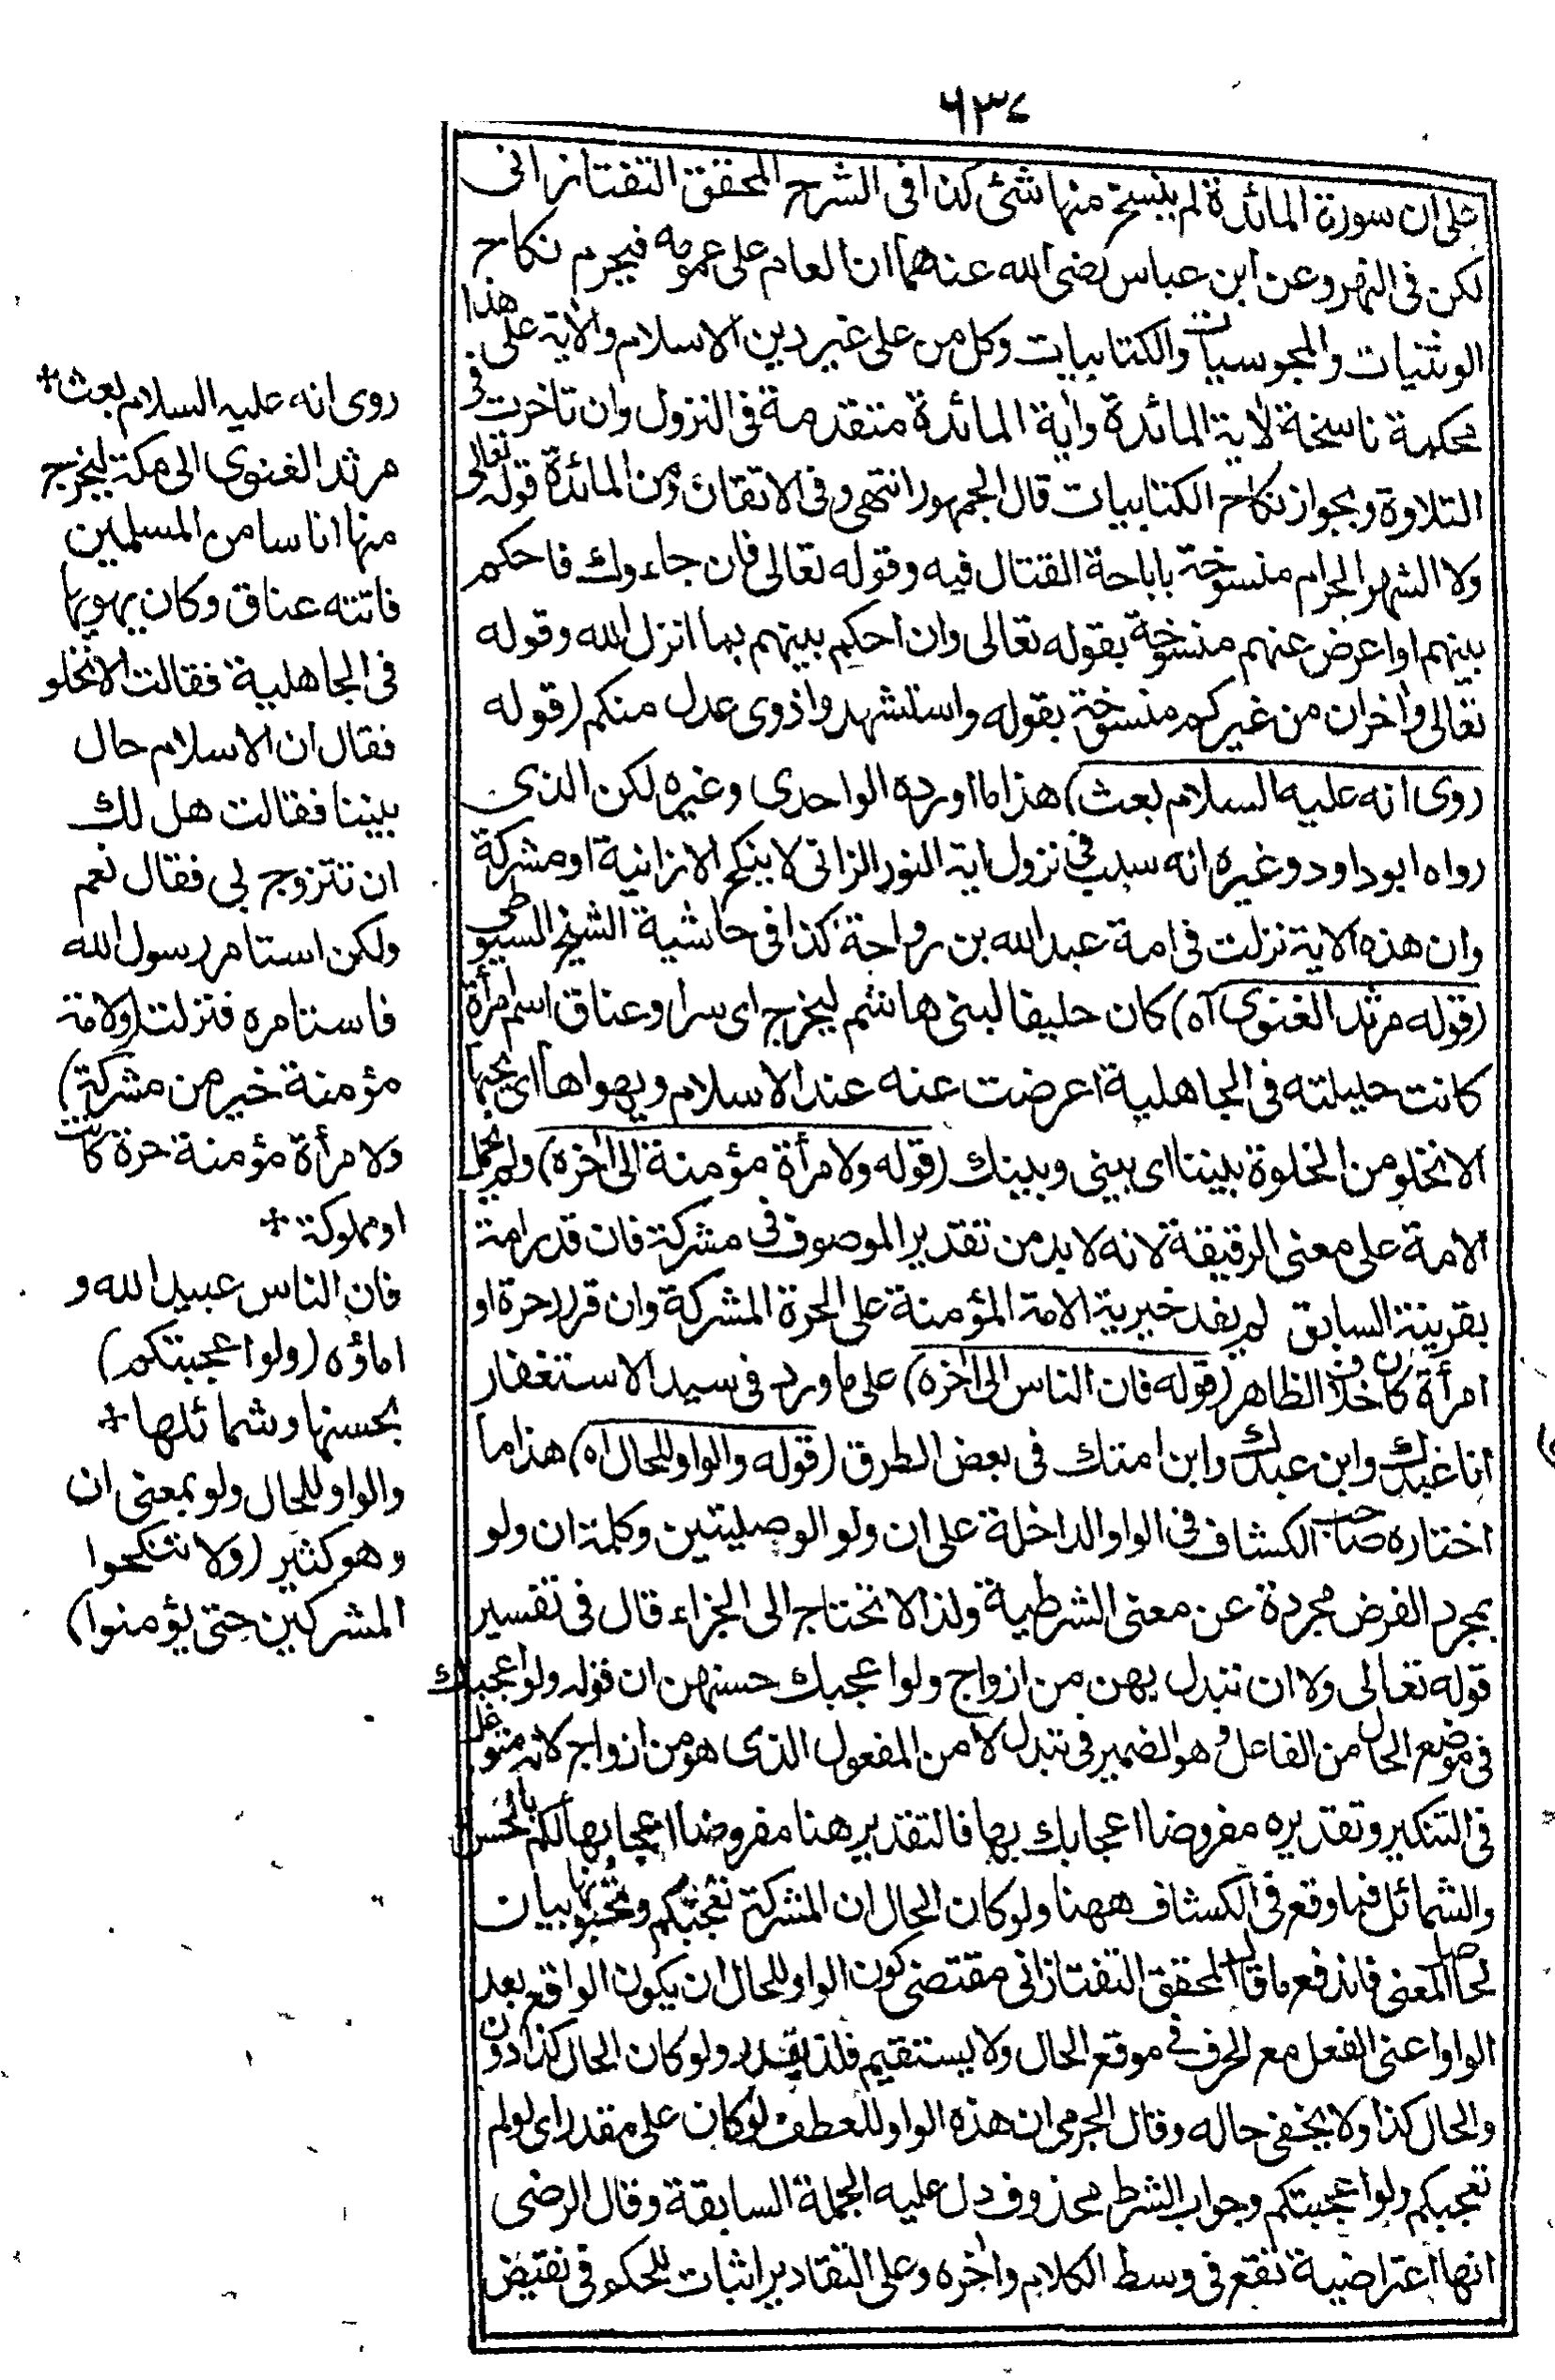 ٦٣٧
على ان سورة المائدة لم ينسخ منها شئ كذا فى الشرح المحقق التفتازانى
لكن فى النهر وعن ابن عباس رضى الله عنهما ان العام على عمومه فيحرم نكاح
الوثنيات والمجوسيات والكتابيات وكل من على غير دين الاسلام والاية على هذا
محكمة ناسخة لاية المائدة واية المائدة متقدمة فى النزول وان تاخرت فى
التلاوة وبجواز نكاح الكتابيات قال الجمهور انتهى وفى الاتقان ومن المائدة قوله تعالى
ولا الشهر الحرام منسوخة باباحة القتال فيه وقوله تعالى فان جاءوك فاحكم
بينهم او اعرض عنهم منسوخة بقوله تعالى وان احكم بينهم بما انزل الله وقوله
تعالى واخران من غيركم منسوخة بقوله واستشهدوا ذوى عدل منكم (قوله
روى انه عليه السلام بعث) هذا ما اورده الواحدى وغيره لكن الذى
رواه ابوداود وغيره انه سبب فى نزول اية النور الزانى لا ينكح الا زانية او مشركة
وان هذه الاية نزلت فى امة عبد الله بن رواحة كذا فى حاشية الشيخ السيوطى
(قوله مرثد الغنوى آه) كان حليفا لبنى هاشم ليخرج اى سرا وعناق اسم امرأة
كانت خليلته فى الجاهلية اعرضت عنه عند الاسلام ويهواها اى يحبها
الا تخلو من الخلوة بيننا اى بينى وبينك (قوله ولامرأة مؤمنة الى اخره) ولم يحمل
الامة على معنى الرقيقة لانه لا بد من تقدير الموصوف فى مشركة فان قدر امة
بقرينة السابق لم يفد خيرية الامة المؤمنة على الحرة المشركة وان قدر حرة او
امرأة كان خلاف الظاهر (قوله فان الناس الى اخره) على ما ورد فى سيد الاستغفار
انا عبدك وابن عبدك وابن امتك فى بعض الطرق (قوله والواو للحال اه) هذا ما
اختاره صاحب الكشاف فى الواو الداخلة على ان ولو الوصليتين وكلمة ان ولو
بمجرد الفرض مجردة عن معنى الشرطية ولذا لا تحتاج الى الجزاء قال فى تفسير
قوله تعالى ولا ان تبدل بهن من ازواج ولو اعجبك حسنهن ان قوله ولو اعجبك
فى موضع الحال من الفاعل وهو الضمير فى تبدل لا من المفعول الذى هو من ازواج لانه متوغل
فى التنكير وتقديره مفروضا اعجابك بها فالتقدير هنا مفروضا اعجابها لكم بالحسن
والشمائل فما وقع فى الكشاف ههنا ولو كان الحال ان المشركة تعجبكم وتحبونها بيان
لحاصل المعنى فاندفع ما قال المحقق التفتازانى مقتضى كون الواو للحال ان يكون الواقع بعد
الواو اعنى الفعل مع الحرف فى موقع الحال ولا يستقيم فلذا يقدر ولو كان الحال كذا دون
والحال كذا ولا يخفى حاله وقال الجرمى ان هذه الواو للعطف لو كان على مقدر اى لو لم
تعجبكم ولو اعجبتكم وجواب الشرط محذوف دل عليه الجملة السابقة وقال الرضى
انها اعتراضية تقع فى وسط الكلام واخره وعلى التقادير اثبات للحكم فى نقيض
روى انه عليه السلام بعث*
مرثد الغنوى الى مكة ليخرج
منها اناسا من المسلمين
فاتته عناق وكان يهويها
فى الجاهلية فقالت الا تخلو
فقال ان الاسلام حال
بيننا فقالت هل لك
ان تتزوج بى فقال نعم
ولكن استامر رسول الله
فاستامره فنزلت (ولامة
مؤمنة خير من مشركة)
ولامرأة مؤمنة حرة كانت
او مملوكة *
فان الناس عبيد الله و
اماؤه (ولو اعجبتكم)
بحسنها وشمائلها *
والواو للحال ولو بمعنى ان
وهو كثير (ولا تنكحوا
المشركين حتى يؤمنوا)